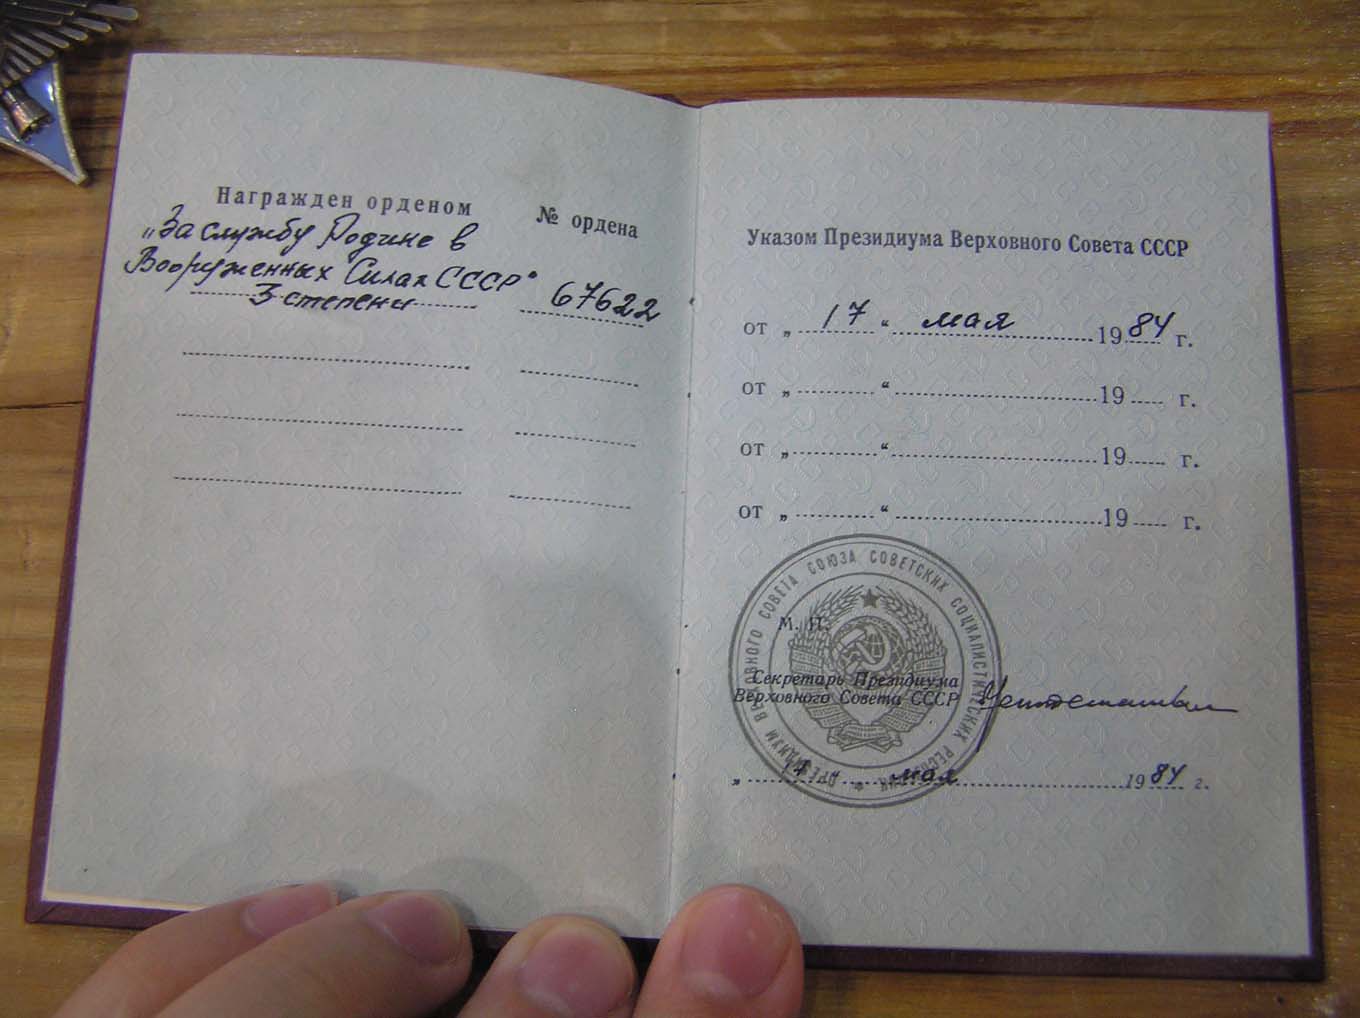 Награжден орденом
№ ордена
„За службу Родине в
Вооруженных Силах СССР"
3 степени
67622
Указом Президиума Верховного Совета СССР
от „ 17 “ мая 1984 г.
от „ “ 19 г.
от „ “ 19 г.
от „ “ 19 г.
ПРЕЗИДИУМ ВЕРХОВНОГО СОВЕТА СОЮЗА СОВЕТСКИХ СОЦИАЛИСТИЧЕСКИХ РЕСПУБЛИК
М. П.
Секретарь Президиума
Верховного Совета СССР
„ 17 “ мая 1984 г.